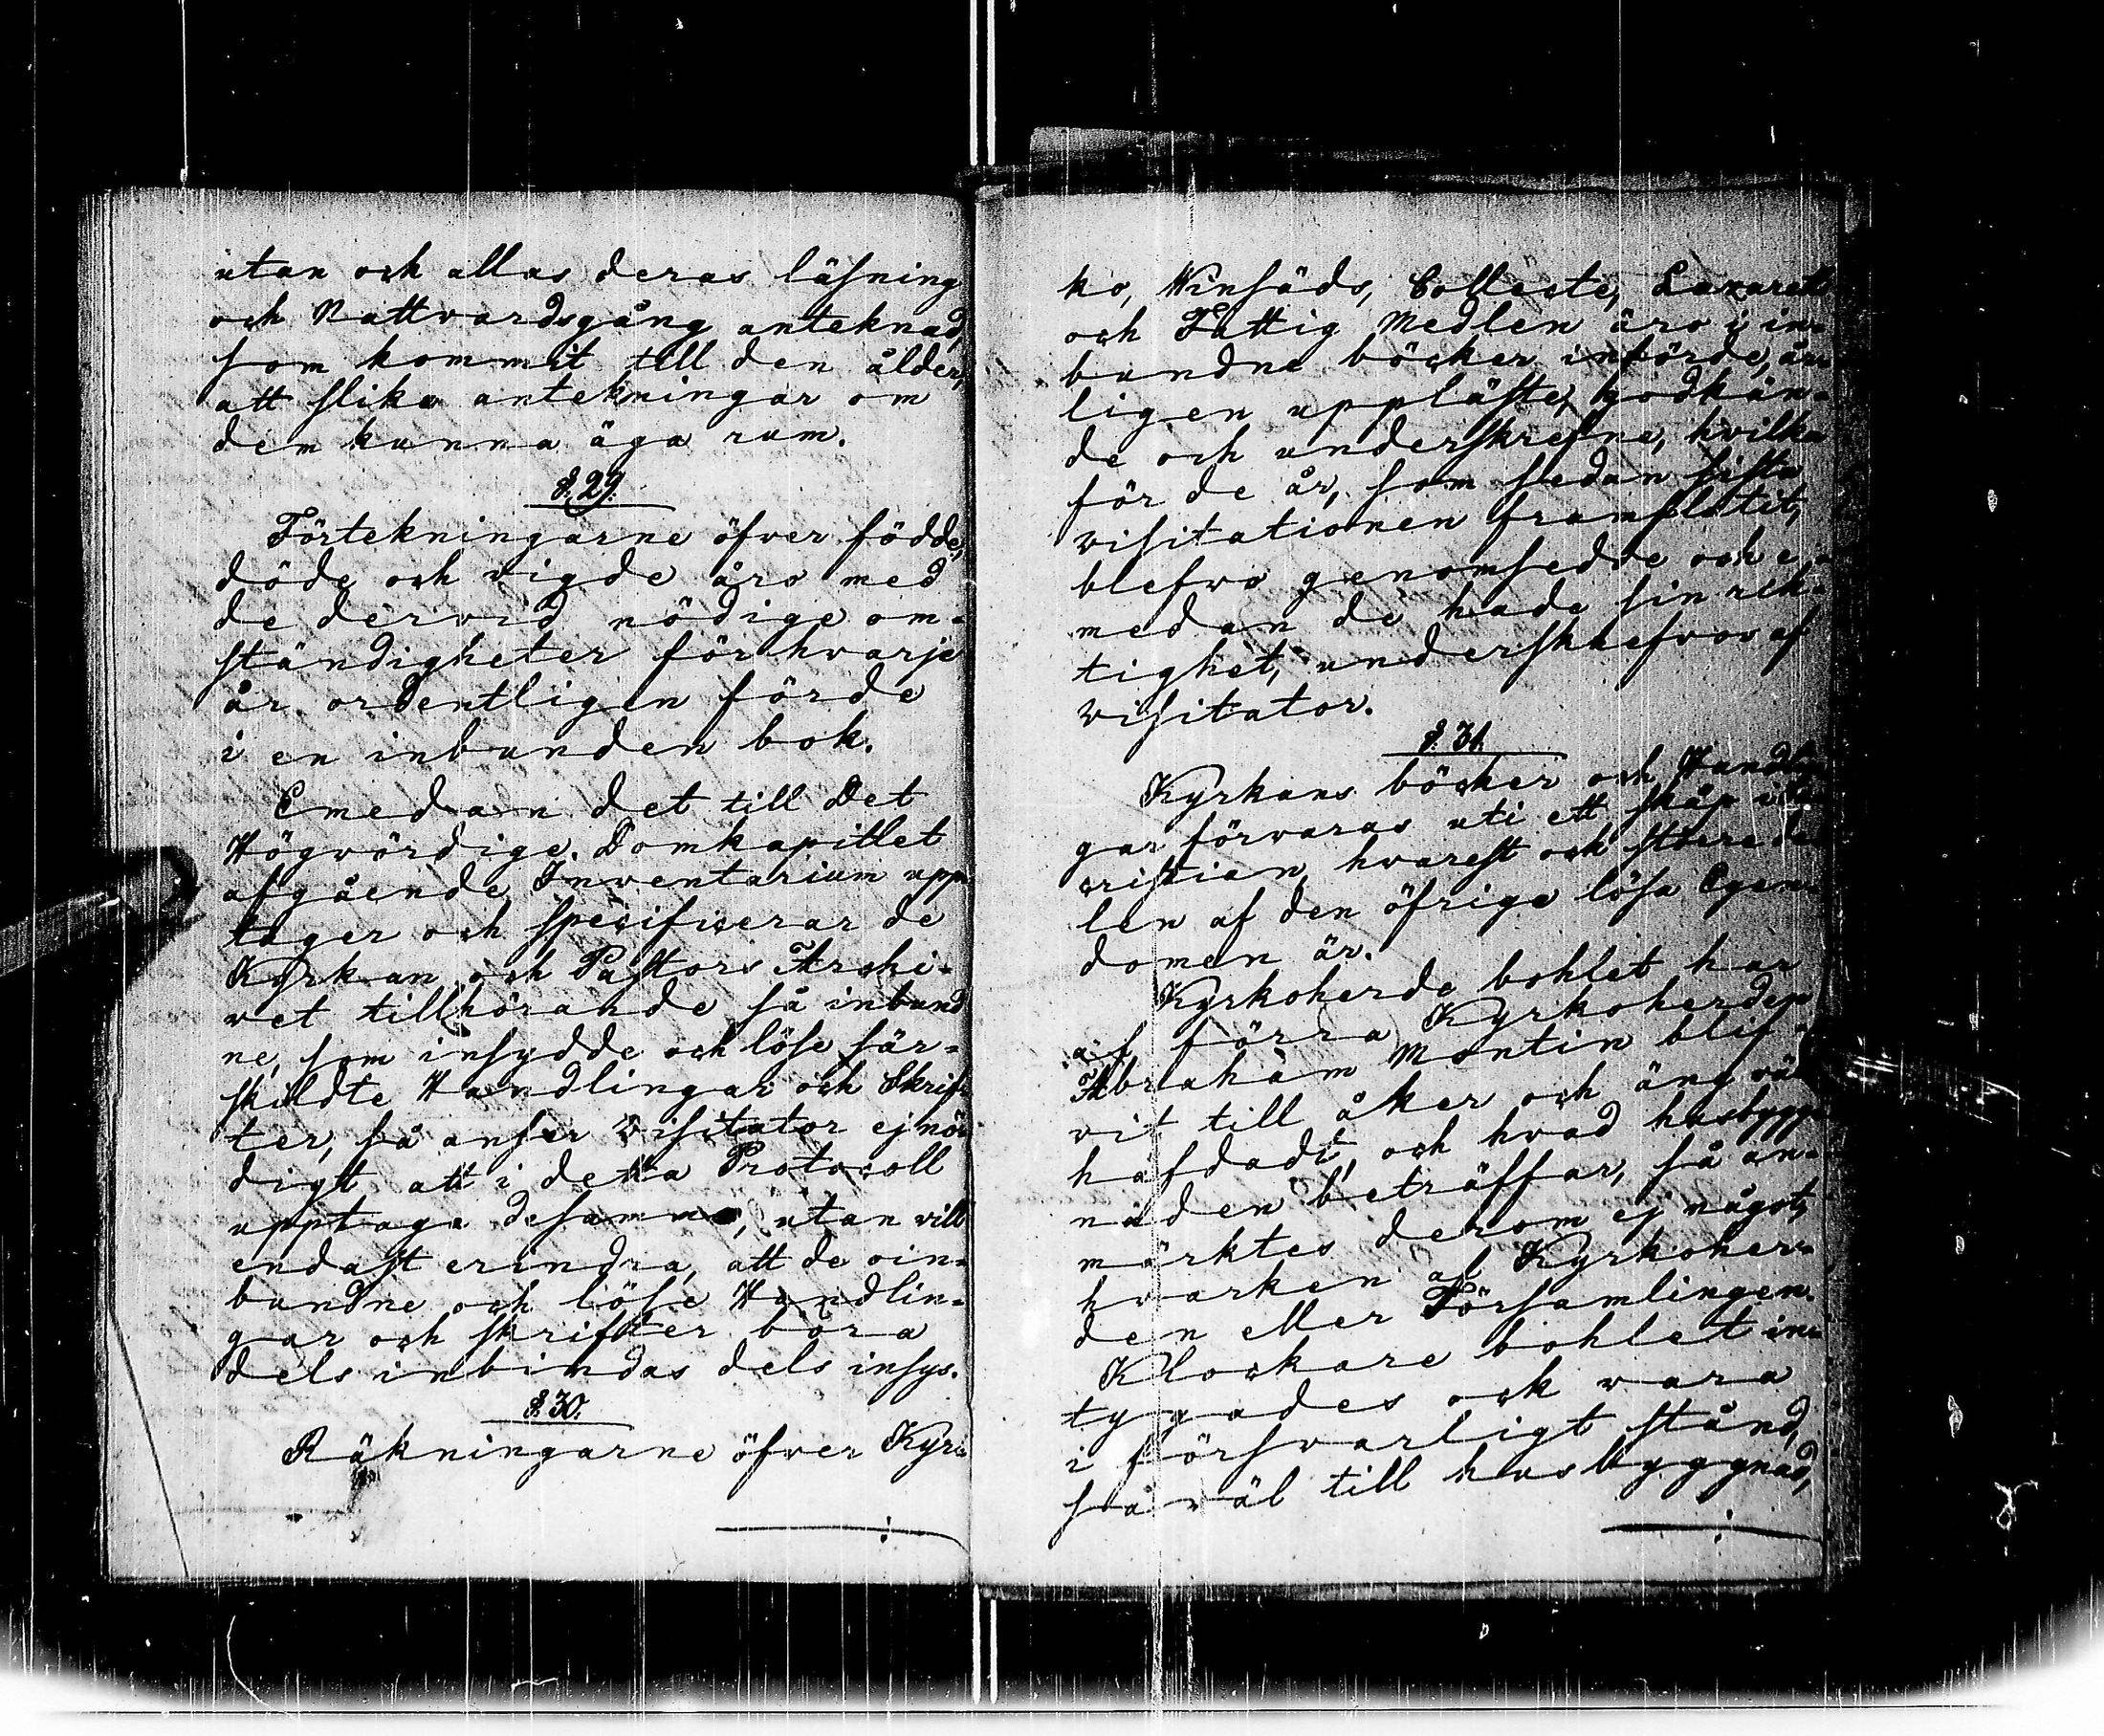 utan och allas deras läsning
och Nattvardsgång anteknad,
som kommit till den ålder,
att slika antekningar om
dem kunna äga rum.
§. 29.
Förtekningarne öfver födde,
döde och vigde äro med
de dervid nödige om-
ständigheter för hvarje
år ordentligen förde
i en inbunden bok.
Emedan det till Det
Högvördige Domkapitlet
afgående Inventarium upp
tager och specificerar de
Kyrkan och Pastors Archi-
vet tillhörande så inbund
ne, som insydde och löse sär-
skildte Handlingar och Skrif-
ter, så anser Visitator ej nö-
digt att i detta Protocoll
upptaga desamma, utan vill
endast erindra, att de oin-
bundne och löse Handlin-
gar och skrifter böra
dels inbindas dels insys.
§. 30.
Räkningarne öfver Kyr-
ko, Winsäds, Collecte, Lazarett
och Fattig Medlen äro i in-
bundne böcker införde, år-
ligen uppläste, godkän-
de och underskrefne, hvilka
för de år, som sedan sista
visitationen framflutit,
blefvo genomsedde och e-
medan de hade sin rik-
tighet, underskrefvos af
Visitator.
§. 31.
Kyrkans böcker och Handlin
gar förvaras uti ett skåp i
cristian, hvarest och större de
len af den öfriga lösa Egen-
domen är.
Kyrkoherde bohlet har
af förra Kyrkoherden
Abraham Montin blif-
vit till åker och äng väl
häfdadt, och hvad husbygg-
naden beträffar, så an-
märktes derom ej något,
hvarken af Kyrkoher-
den eller Församlingen.
Klockare bohlet in-
tygades och vara
i försvarligt stånd,
så väl till husbyggnad,